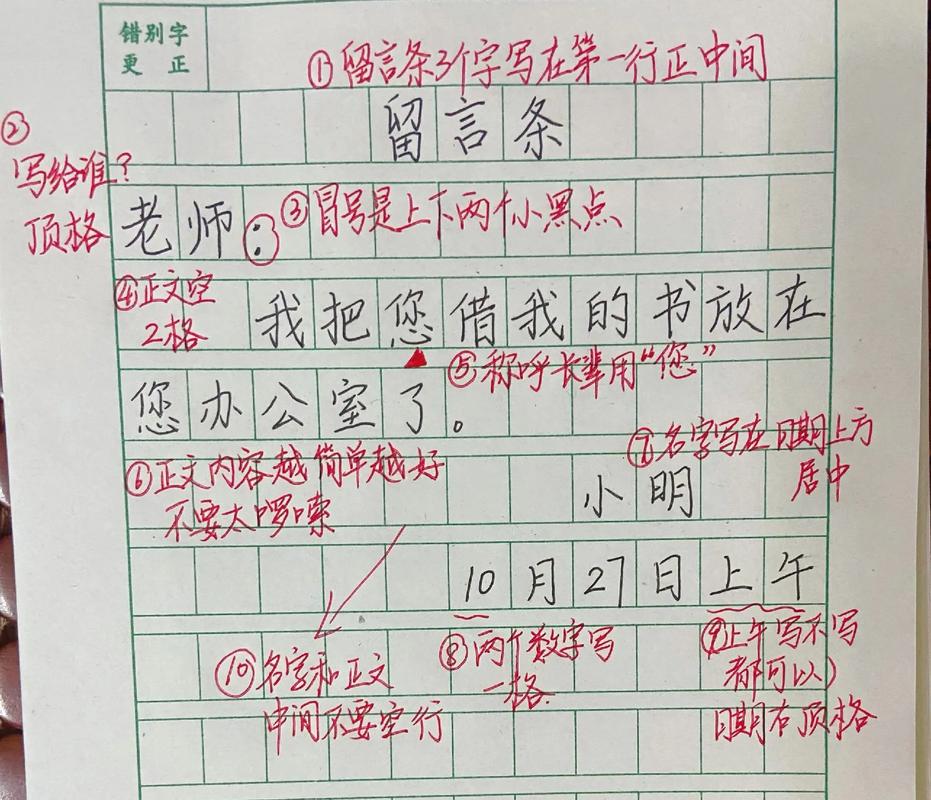 错别字
更 正
①留言条3个字写在第一行正中间
留言条
②
写给谁?
顶格
老师:
③冒号是上下两个小黑点
④正文空
2格
我把您借我的书放在
⑤称呼长辈用“您”
您办公室了。
⑥正文内容越简单越好
不要太啰嗦
⑦名字写在日期上方
居中
小明
10月27日上午
⑧两个数字写
一格.
⑨上午写不写
都可以)
日期右顶格
⑩名字和正文
中间不要空行